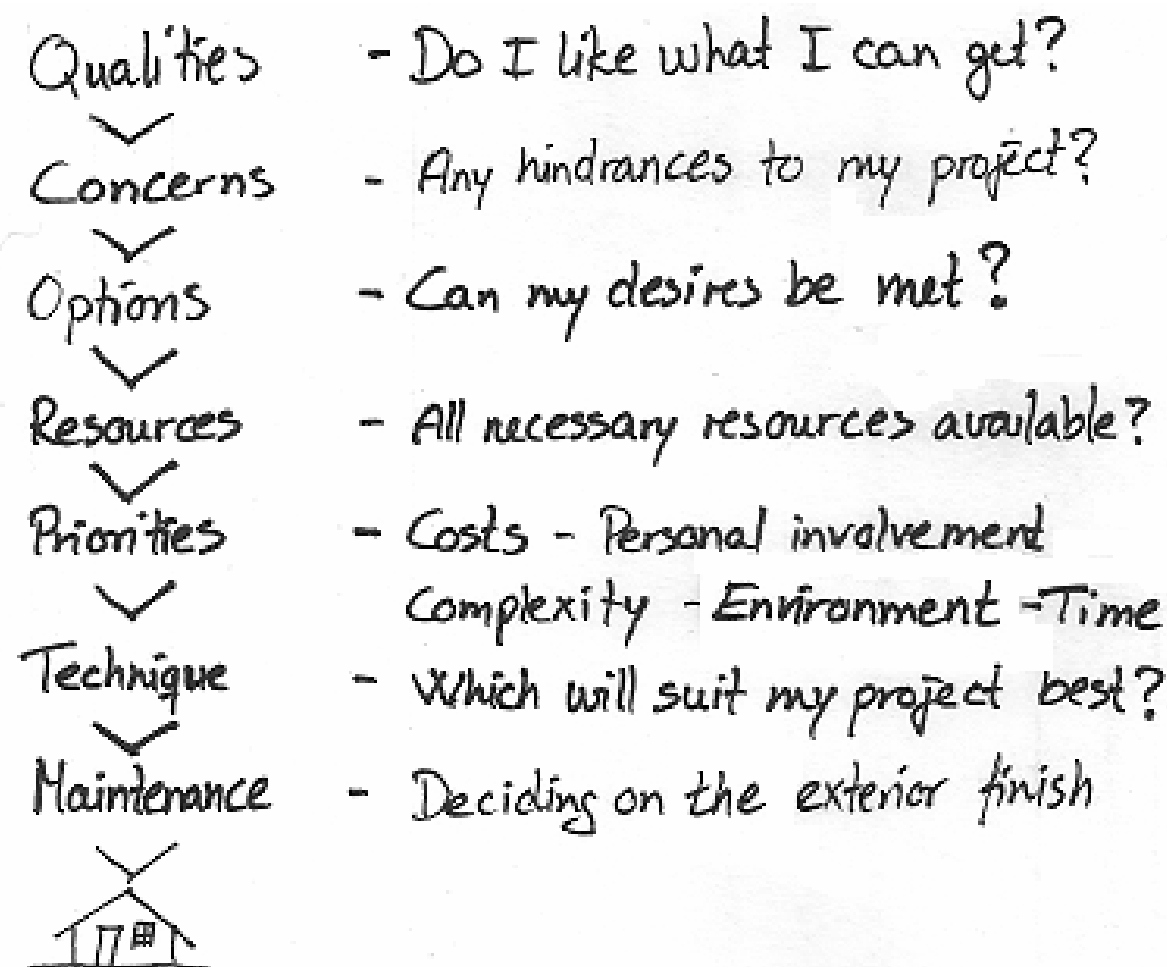 Qualities - Do I like what I can get?
Concerns - Any hindrances to my project?
Options - Can my desires be met?
Resources - All necessary resources available?
Priorities - Costs - Personal involvement
Complexity - Environment - Time
Technique - Which will suit my project best?
Maintenance - Deciding on the exterior finish